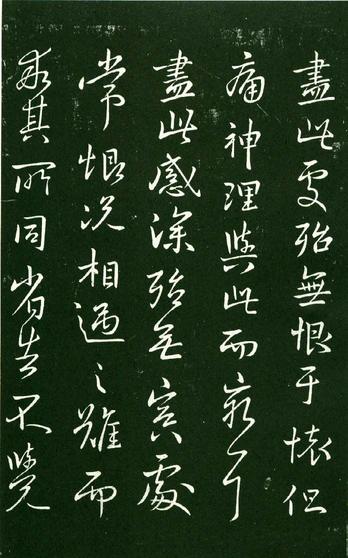 盡此處殆無恨于懷但
痛神理與此而窮耳
盡此感深殆無寘處
常恨況相遇之難而
乖其所同省告不覺